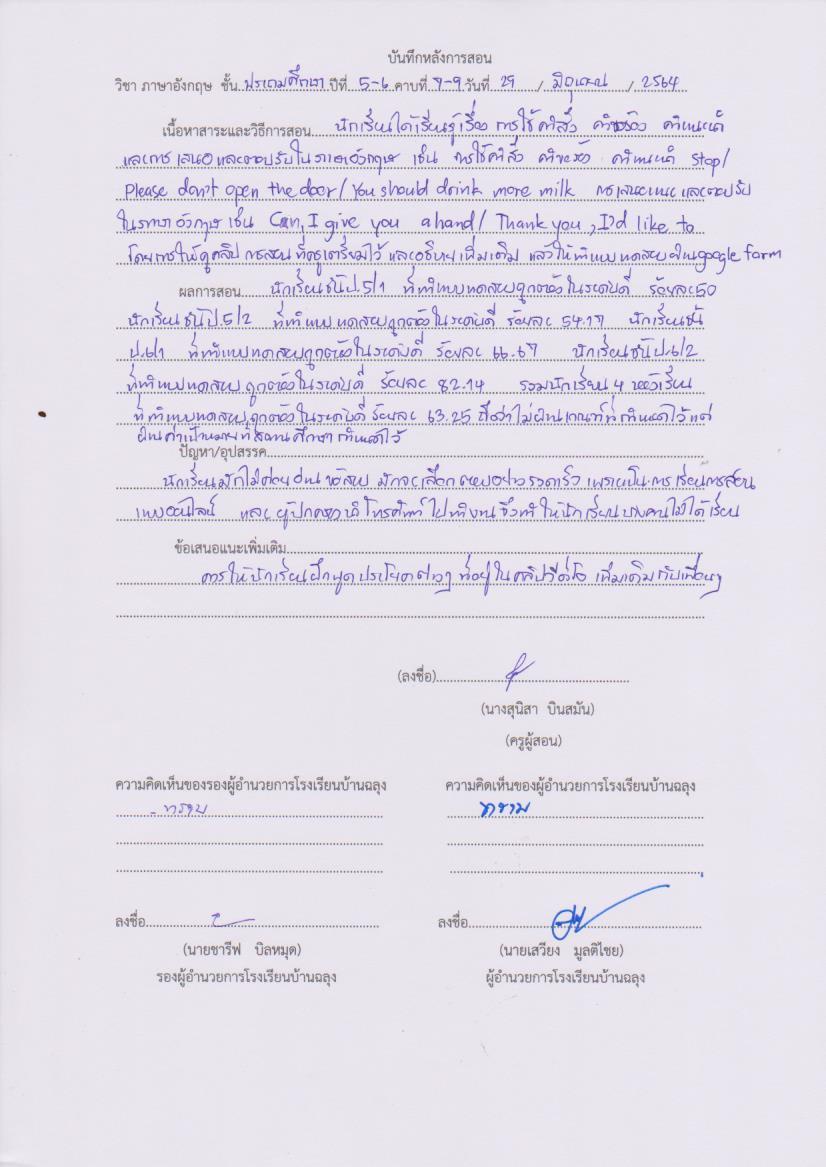 บันทึกหลังการสอน
วิชา ภาษาอังกฤษ ชั้น ประถมศึกษา ปีที่ 5-6 คาบที่ 7-9 วันที่ 29 / มิถุนายน / 2564
เนื้อหาสาระและวิธีการสอน นักเรียนได้เรียนรู้เรื่อง การใช้คำสั่ง คำขอร้อง คำแนะนำ
และการเสนอและตอบรับในภาษาอังกฤษ เช่น การใช้คำสั่ง คำขอร้อง คำแนะนำ Stop/
Please don't open the door/ You should drink more milk การเสนอแนะและตอบรับ
ในภาษาอังกฤษ เช่น Can I give you a hand/ Thank you, I'd like to
โดยการให้ดูคลิปการสอนที่ครูเตรียมไว้ และอธิบายเพิ่มเติม แล้วให้ทำแบบทดสอบผ่าน google form
ผลการสอน นักเรียนชั้นป.5/1 ที่ทำแบบทดสอบถูกต้องในระดับดี ร้อยละ 50
นักเรียนชั้นป.5/2 ที่ทำแบบทดสอบถูกต้องในระดับดี ร้อยละ 54.17 นักเรียนชั้น
ป.6/1 ที่ทำแบบทดสอบถูกต้องในระดับดี ร้อยละ 66.67 นักเรียนชั้นป.6/2
ที่ทำแบบทดสอบถูกต้องในระดับดี ร้อยละ 82.14 รวมนักเรียน 4 ห้องเรียน
ที่ทำแบบทดสอบถูกต้องในระดับดี ร้อยละ 63.25 ถือว่าไม่ผ่านเกณฑ์ที่กำหนดไว้ แต่
ผ่านค่าเป้าหมายที่สถานศึกษากำหนดไว้
ปัญหา/อุปสรรค
นักเรียนมักไม่ค่อยอ่านข้อสอบ มักจะเลือกตอบอย่างรวดเร็ว เพราะเป็นการเรียนการสอน
แบบออนไลน์ และผู้ปกครองนำโทรศัพท์ไปทำงาน จึงทำให้นักเรียนบางคนไม่ได้เรียน
ข้อเสนอแนะเพิ่มเติม
ควรให้นักเรียนฝึกพูดประโยคต่างๆ ที่อยู่ในคลิปวีดีโอ เพิ่มเติมกับเพื่อนๆ
(ลงชื่อ)
(นางสุนิสา บินสมัน)
(ครูผู้สอน)
ความคิดเห็นของรองผู้อำนวยการโรงเรียนบ้านฉลุง
- ทราบ
ลงชื่อ
(นายชารีฟ บิลหมุด)
รองผู้อำนวยการโรงเรียนบ้านฉลุง
ความคิดเห็นของผู้อำนวยการโรงเรียนบ้านฉลุง
ทราบ
ลงชื่อ
(นายเสวียง มูลติไชย)
ผู้อำนวยการโรงเรียนบ้านฉลุง